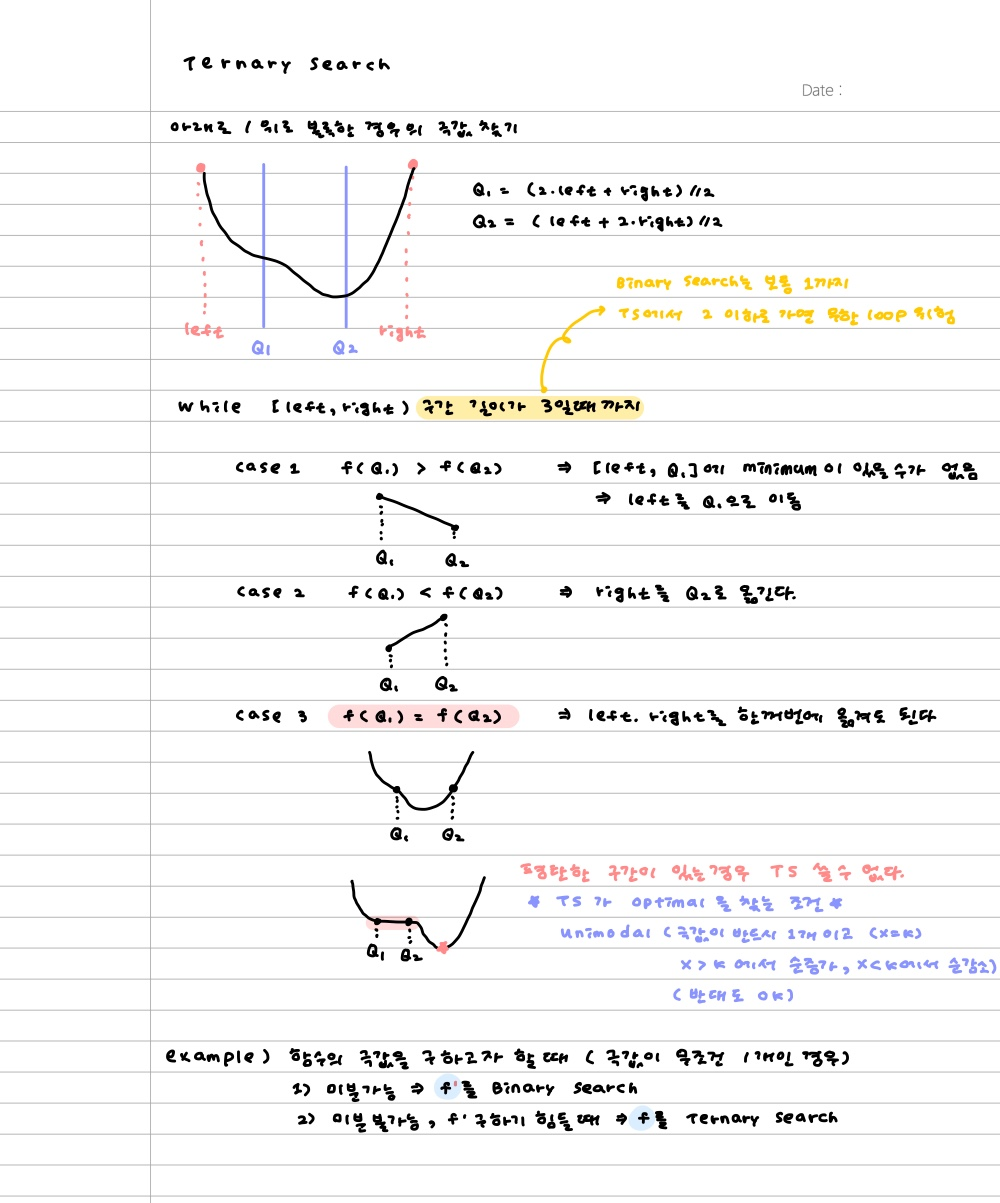 Ternary Search
Date :
아래로 / 위로 볼록한 경우의 극값 찾기
Q₁ = (2·left + right) //2
Q₂ = ( left + 2·right) //2
left
Q₁
Q₂
right
Binary Search는 보통 1까지
TS에서 2 이하로 가면 무한 loop 위험
While [left, right) 구간 길이가 3일때 까지
case 1 f(Q₁) > f(Q₂) ⇒ [left, Q₁]에 minimum이 있을 수가 없음
⇒ left를 Q₁으로 이동
Q₁ Q₂
case 2 f(Q₁) < f(Q₂) ⇒ right를 Q₂로 옮긴다.
Q₁ Q₂
case 3 f(Q₁) = f(Q₂) ⇒ left. right를 한꺼번에 옮겨도 된다
Q₁ Q₂
평탄한 구간이 있는경우 TS 쓸 수 없다.
* TS가 optimal 을 찾는 조건 *
Unimodal (극값이 반드시 1개 이고 (x=k)
x > k 에서 순증가, x<k에서 순감소)
( 반대도 OK)
Q₁ Q₂
example) 함수의 극값을 구하고자 할 때 ( 극값이 무조건 1개인 경우)
1) 미분가능 ⇒ f'를 Binary Search
2) 미분 불가능, f' 구하기 힘들때 ⇒ f를 Ternary Search